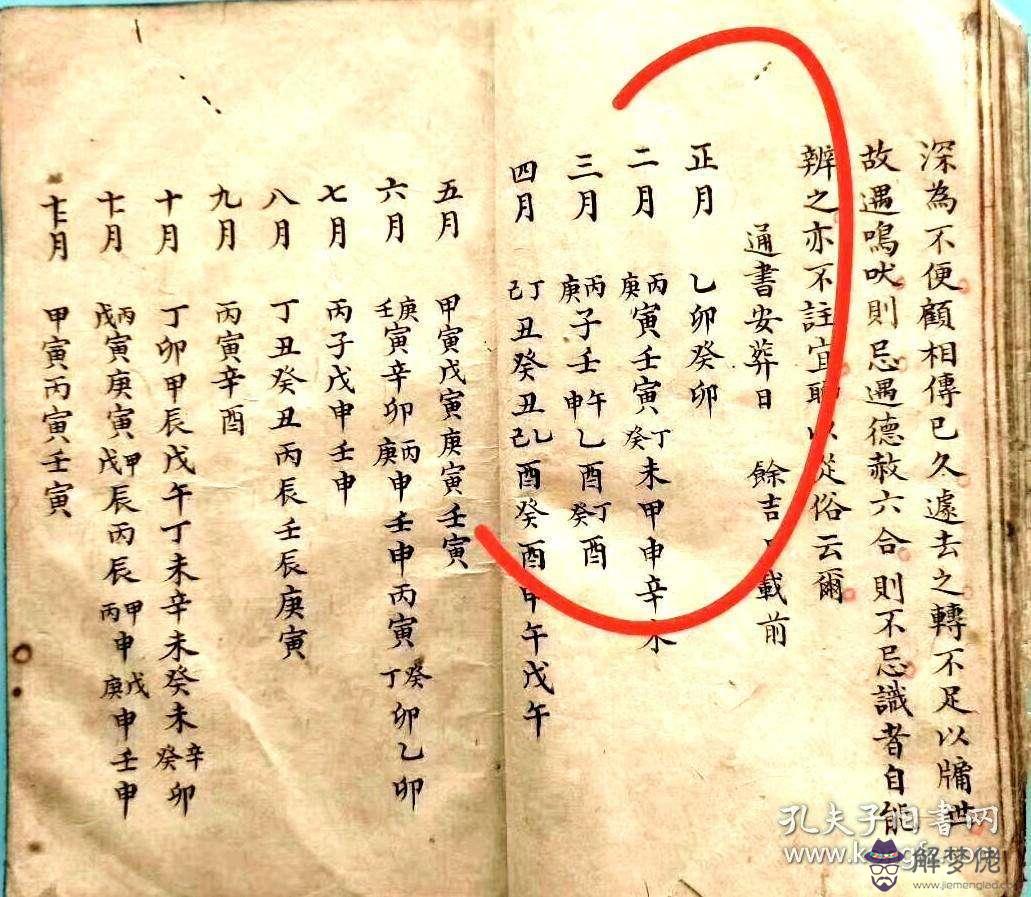 深為不便顧相傳已久遽去之轉不足以牖世
故遇鳴吠則忌遇德赦六合則不忌識者自能
辨之亦不註宜 以從俗云爾
通書安葬日 餘吉 載前
正月 乙卯癸卯
二月 丙庚寅壬寅丁癸未甲申辛未
三月 丙庚子壬午申乙酉丁癸酉
四月 丁己丑癸丑乙己酉癸酉甲午戊午
五月 甲寅戊寅庚寅壬寅
六月 庚壬寅辛卯丙庚申壬申丙寅癸丁卯乙卯
七月 丙子戊申壬申
八月 丁丑癸丑丙辰壬辰庚寅
九月 丙寅辛酉
十月 丁卯甲辰戊午丁未辛未癸未辛癸卯
十一月 丙戊寅庚寅甲戊辰丙辰甲丙申戊庚申壬申
十二月 甲寅丙寅壬寅
孔夫子旧书网
解梦佬
www.jiemenglad.com